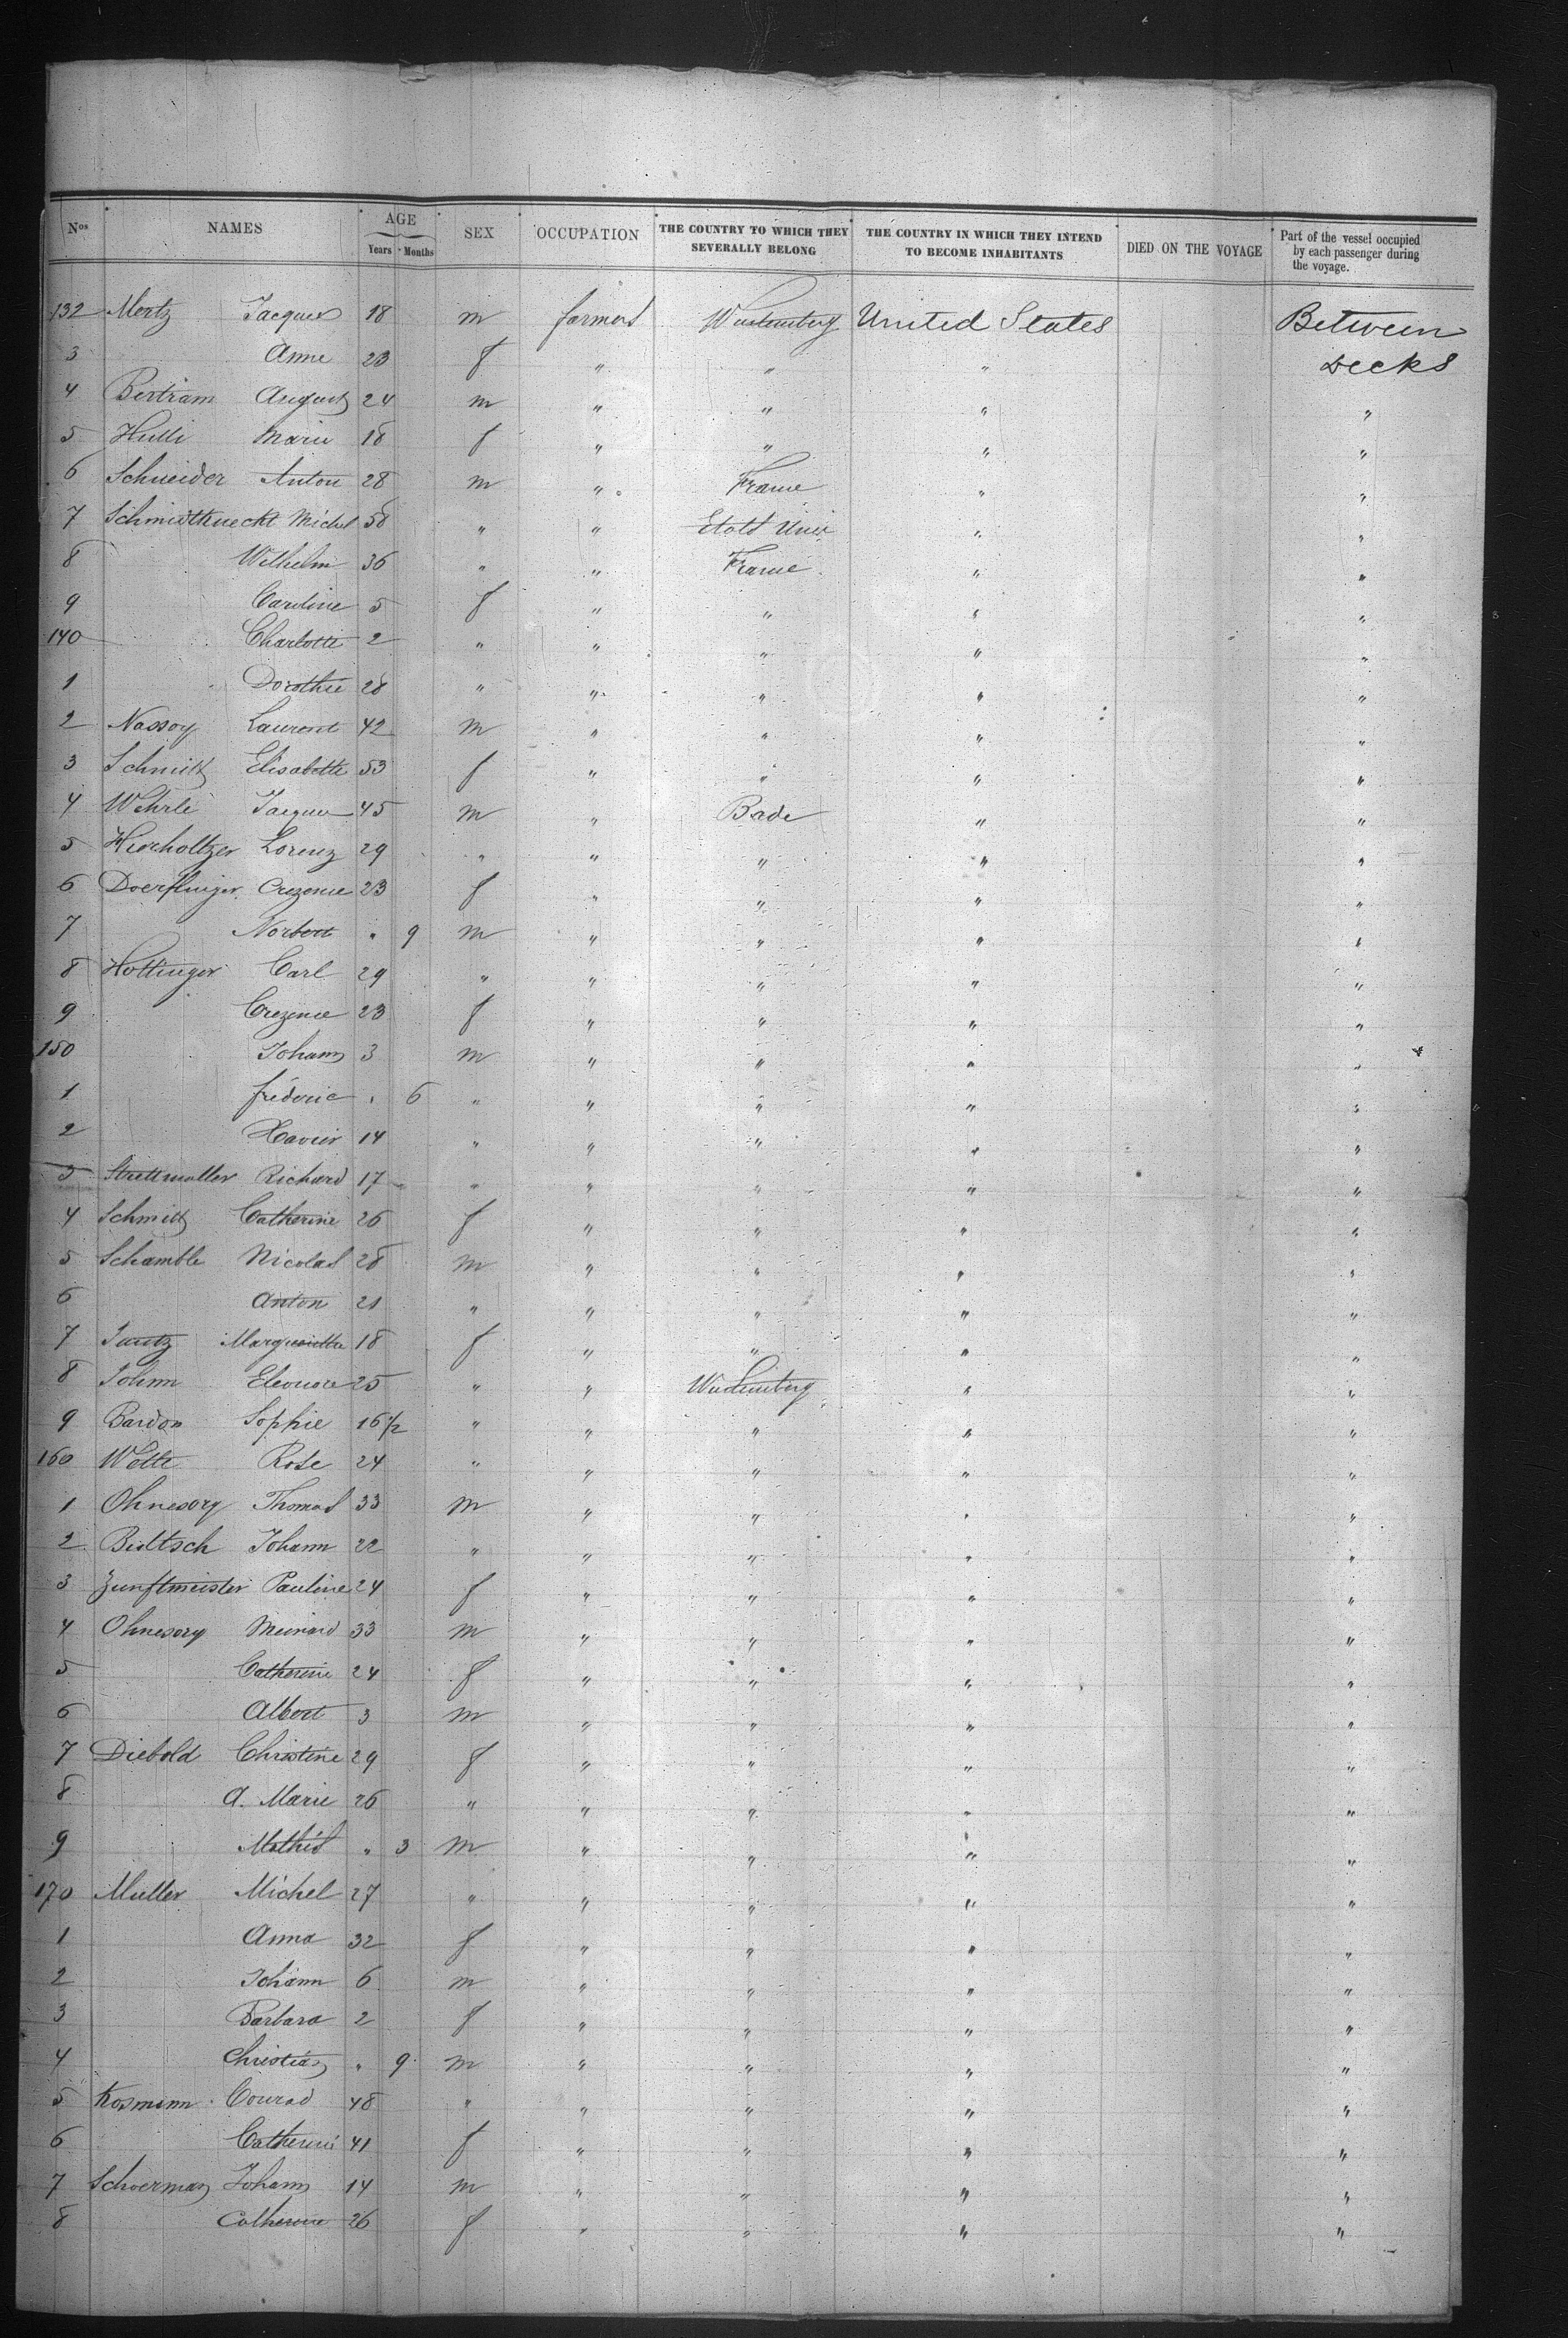 Nos NAMES AGE Years Months SEX OCCUPATION THE COUNTRY TO WHICH THEY SEVERALLY BELONG THE COUNTRY IN WHICH THEY INTEND TO BECOME INHABITANTS DIED ON THE VOYAGE Part of the vessel occupied by each passenger during the voyage.
132 Mertz Jacques 18 m farmers Wurtemberg United States Between
3 Anne 23 f " " " Decks
4 Bertram August 24 m " " " "
5 Hutti Marie 18 f " " " "
6 Schneider Anton 28 m " France " "
7 Schmidtknecht Michel 58 " " Etats Unis " "
8 Wilhelm 36 " " France " "
9 Caroline 5 f " " " "
140 Charlotte 2 " " " " "
1 Dorothie 28 " " " " "
2 Nassoy Laurent 42 m " " " "
3 Schmitt Elisabethe 53 f " " " "
4 Wehrle Jacques 45 m " Bade " "
5 Hierholtzer Lorenz 29 " " " " "
6 Doerflinger Crezence 23 f " " " "
7 Norbert " 9 m " " " "
8 Hottinger Carl 29 " " " " "
9 Crezence 23 f " " " "
150 Johann 3 m " " " "
1 fréderic " 6 " " " " "
2 Xavier 14 " " " " "
3 Strettmatter Richard 17 " " " " "
4 Schmitt Catherine 26 f " " " "
5 Schamble Nicolas 28 m " " " "
6 Anton 21 " " " " "
7 Jautz Marguerithe 18 f " " " "
8 Johnn Eleonore 25 " " Wurtemberg " "
9 Bardon Sophie 16 1/2 " " " " "
160 Wolte Rose 24 " " " " "
1 Ohnesorg Thomas 33 m " " " "
2 Bioltsch Johann 22 " " " " "
3 Zunftmeister Pauline 24 f " " " "
4 Ohnesorg Meinrad 33 m " " " "
5 Catherine 24 f " " " "
6 Albert 3 m " " " "
7 Diebold Christine 29 f " " " "
8 A. Marie 26 " " " " "
9 Mathis " 3 m " " " "
170 Muller Michel 27 " " " " "
1 Anna 32 f " " " "
2 Johann 6 m " " " "
3 Barbara 2 f " " " "
4 Christian " 9 m " " " "
5 Kosmann Conrad 48 " " " " "
6 Catherine 41 f " " " "
7 Schoerman Johann 14 m " " " "
8 Catherine 26 f " " " "